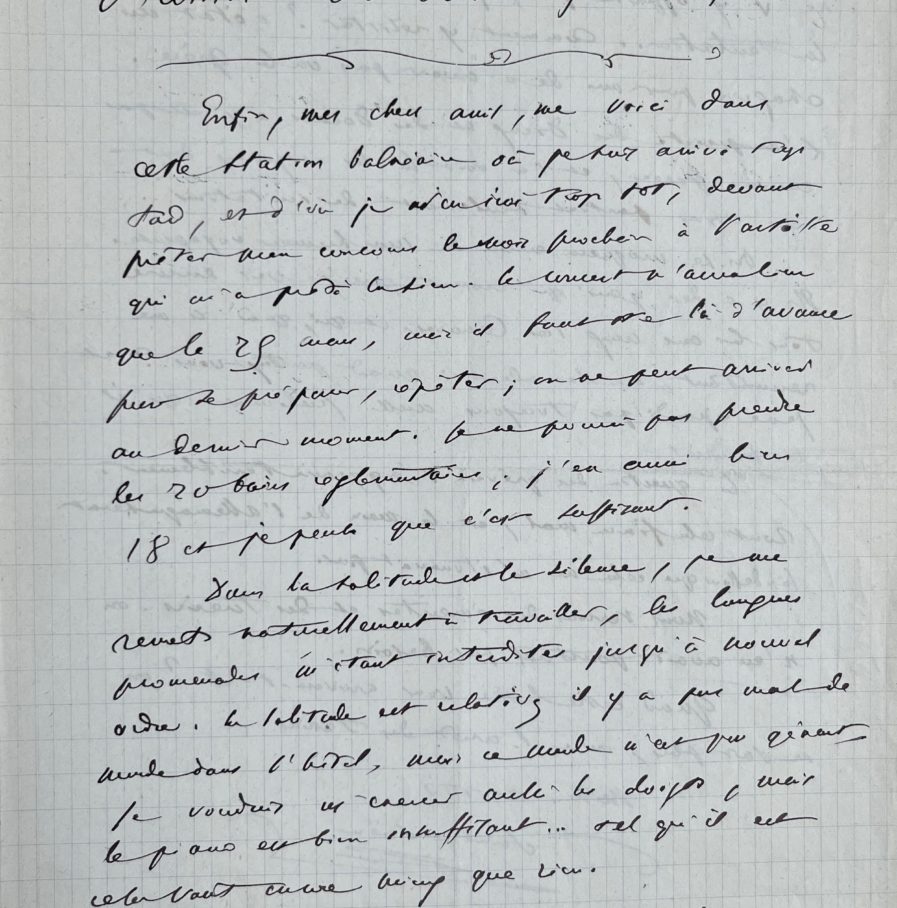 Enfin, mes chers amis, me voici dans
cette station balnéaire où je suis arrivé trop
tard, et d'où je m'en irai trop tôt, devant
prêter mon concours le mois prochain à l'artiste
qui m'a prêté le sien. Le concert n'aura lieu
que le 25 mars, mais il faut être là d'avance
pour se préparer, répéter ; on ne peut arriver
au dernier moment. Je ne pourrai pas prendre
les 20 bains réglementaires, j'en aurai bien
18 et je pense que c'est suffisant.
Dans la solitude et le silence, je me
remets naturellement à travailler, les longues
promenades m'étant interdites jusqu'à nouvel
ordre. La solitude est relative, il y a pas mal de
monde dans l'hôtel, mais ce monde n'est pas gênant.
Je voudrais m'exercer aussi les doigts, mais
le piano est bien insuffisant... tel qu'il est
cela vaut encore mieux que rien.